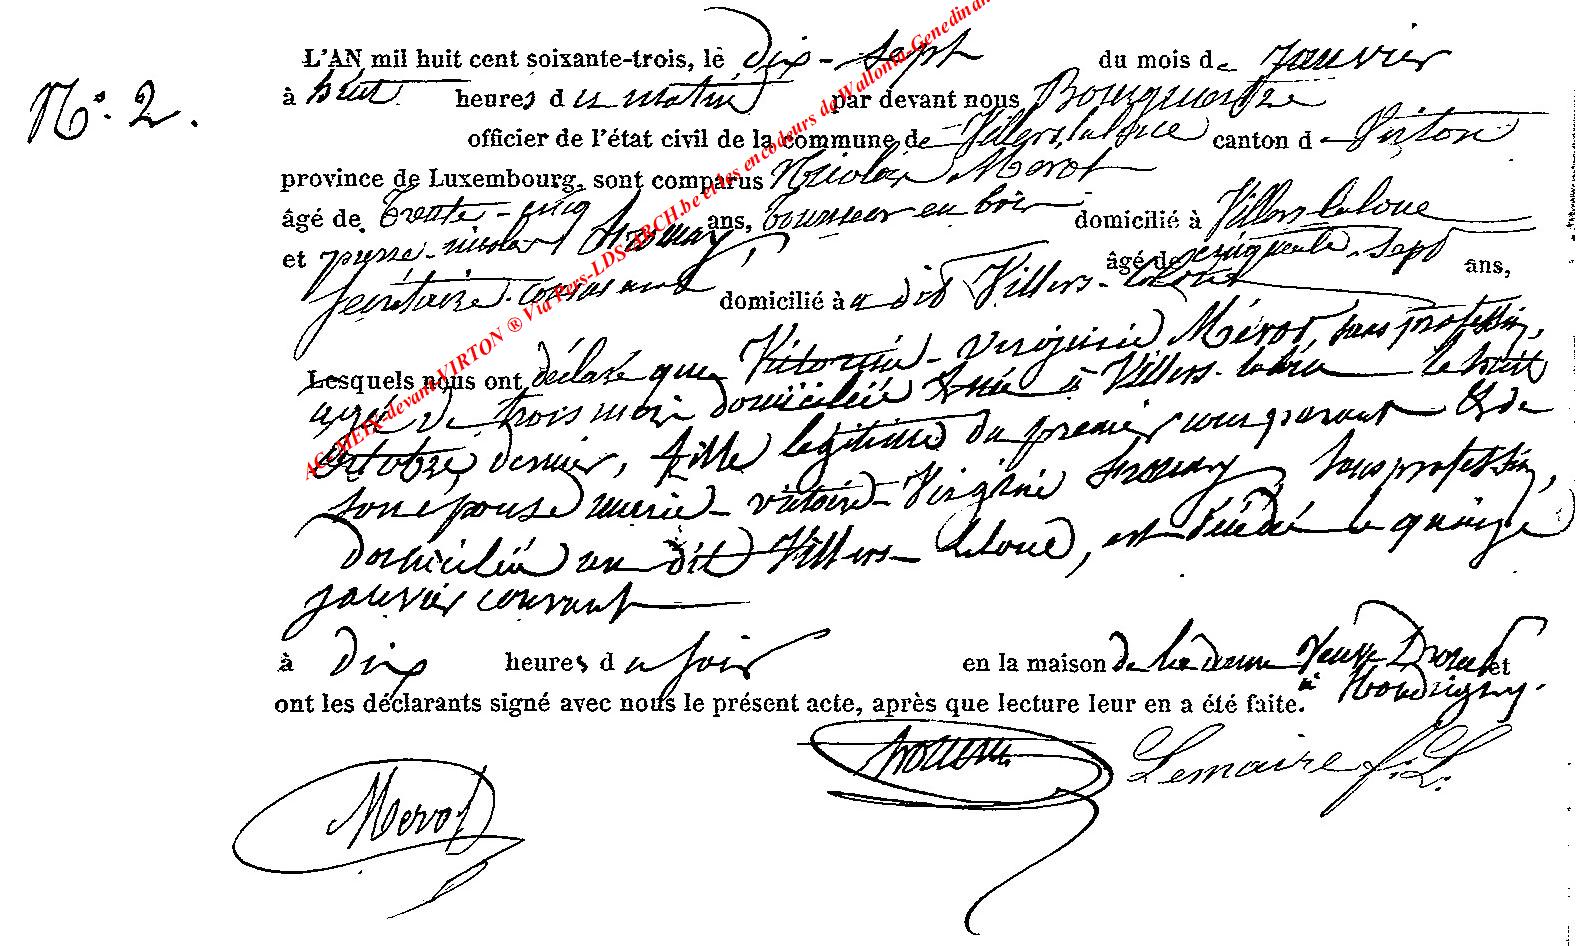 N° 2.
L'AN mil huit cent soixante-trois, le dix-sept du mois de janvier
à huit heures du matin par devant nous
officier de l'état civil de la commune de Villers, laloue canton de Virton
province de Luxembourg, sont comparus Nicolas Merot
âgé de trente-cinq ans, tourneur en bois domicilié à Villers laloue
et pierre-nicolas âgé de cinquante-sept ans,
secrétaire communal domicilié à a dit Villers-laloue
Lesquels nous ont déclaré que Victorine-Virginie Mérot, sans profession,
agée de trois mois domiciliée & née à Villers-laloue le huit
octobre dernier, fille legitime du premier comparant & de
son epouse marie-victoire-Virginie sans profession,
domiciliée au dit Villers-laloue, est décédé le quinze
janvier courant
à dix heures du soir en la maison de la dame veuve et
à Houdrigny.
ont les déclarants signé avec nous le présent acte, après que lecture leur en a été faite.
Merot
Lemaire f. L.
AC-MEIX-devant-VIRTON ® Via Pers-LDS-ARCH.be et les encodeurs de Wallonia-Genedinant